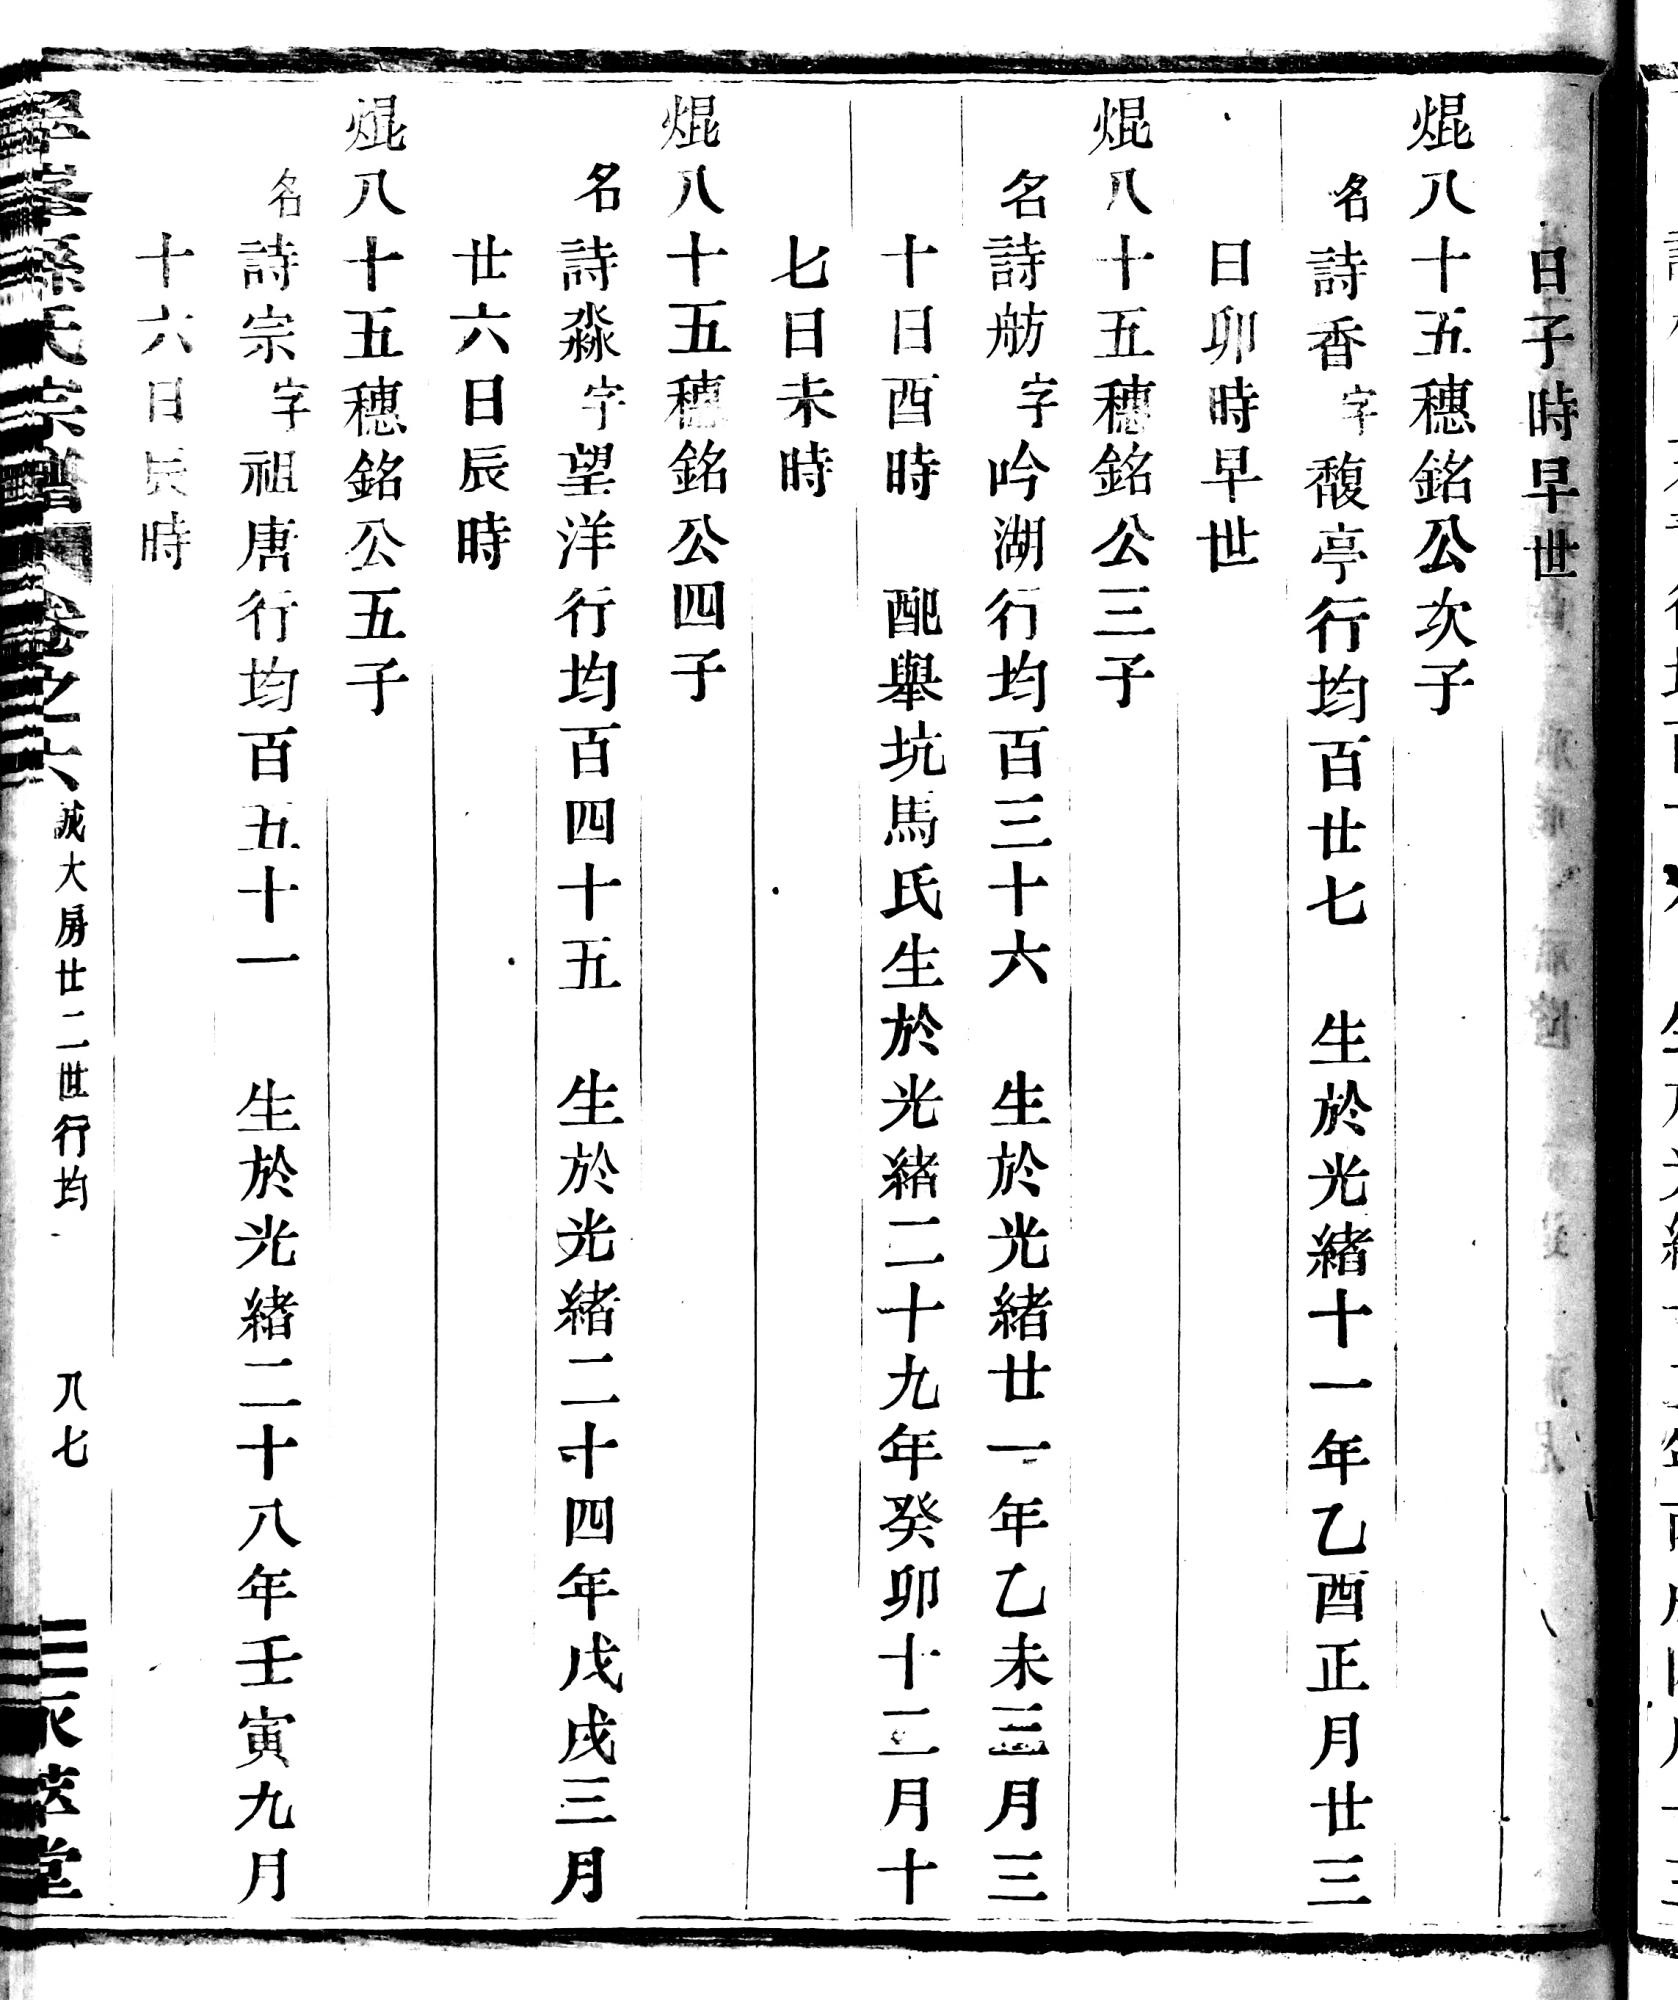 日子時早世
焜八十五穗銘公次子
名詩香字馥亭行均百廿七　生於光緒十一年乙酉正月廿三
日卯時早世
焜八十五穗銘公三子
名詩舫字吟湖行均百三十六　生於光緒廿一年乙未三月三
十日酉時　配舉坑馬氏生於光緒二十九年癸卯十二月十
七日未時
焜八十五穗銘公四子
名詩淼字望洋行均百四十五　生於光緒二十四年戊戌三月
廿六日辰時
焜八十五穗銘公五子
名詩宗字祖唐行均百五十一　生於光緒二十八年壬寅九月
十六日辰時
孫氏宗譜　卷之六　誠大房廿二世行均　八七　堂